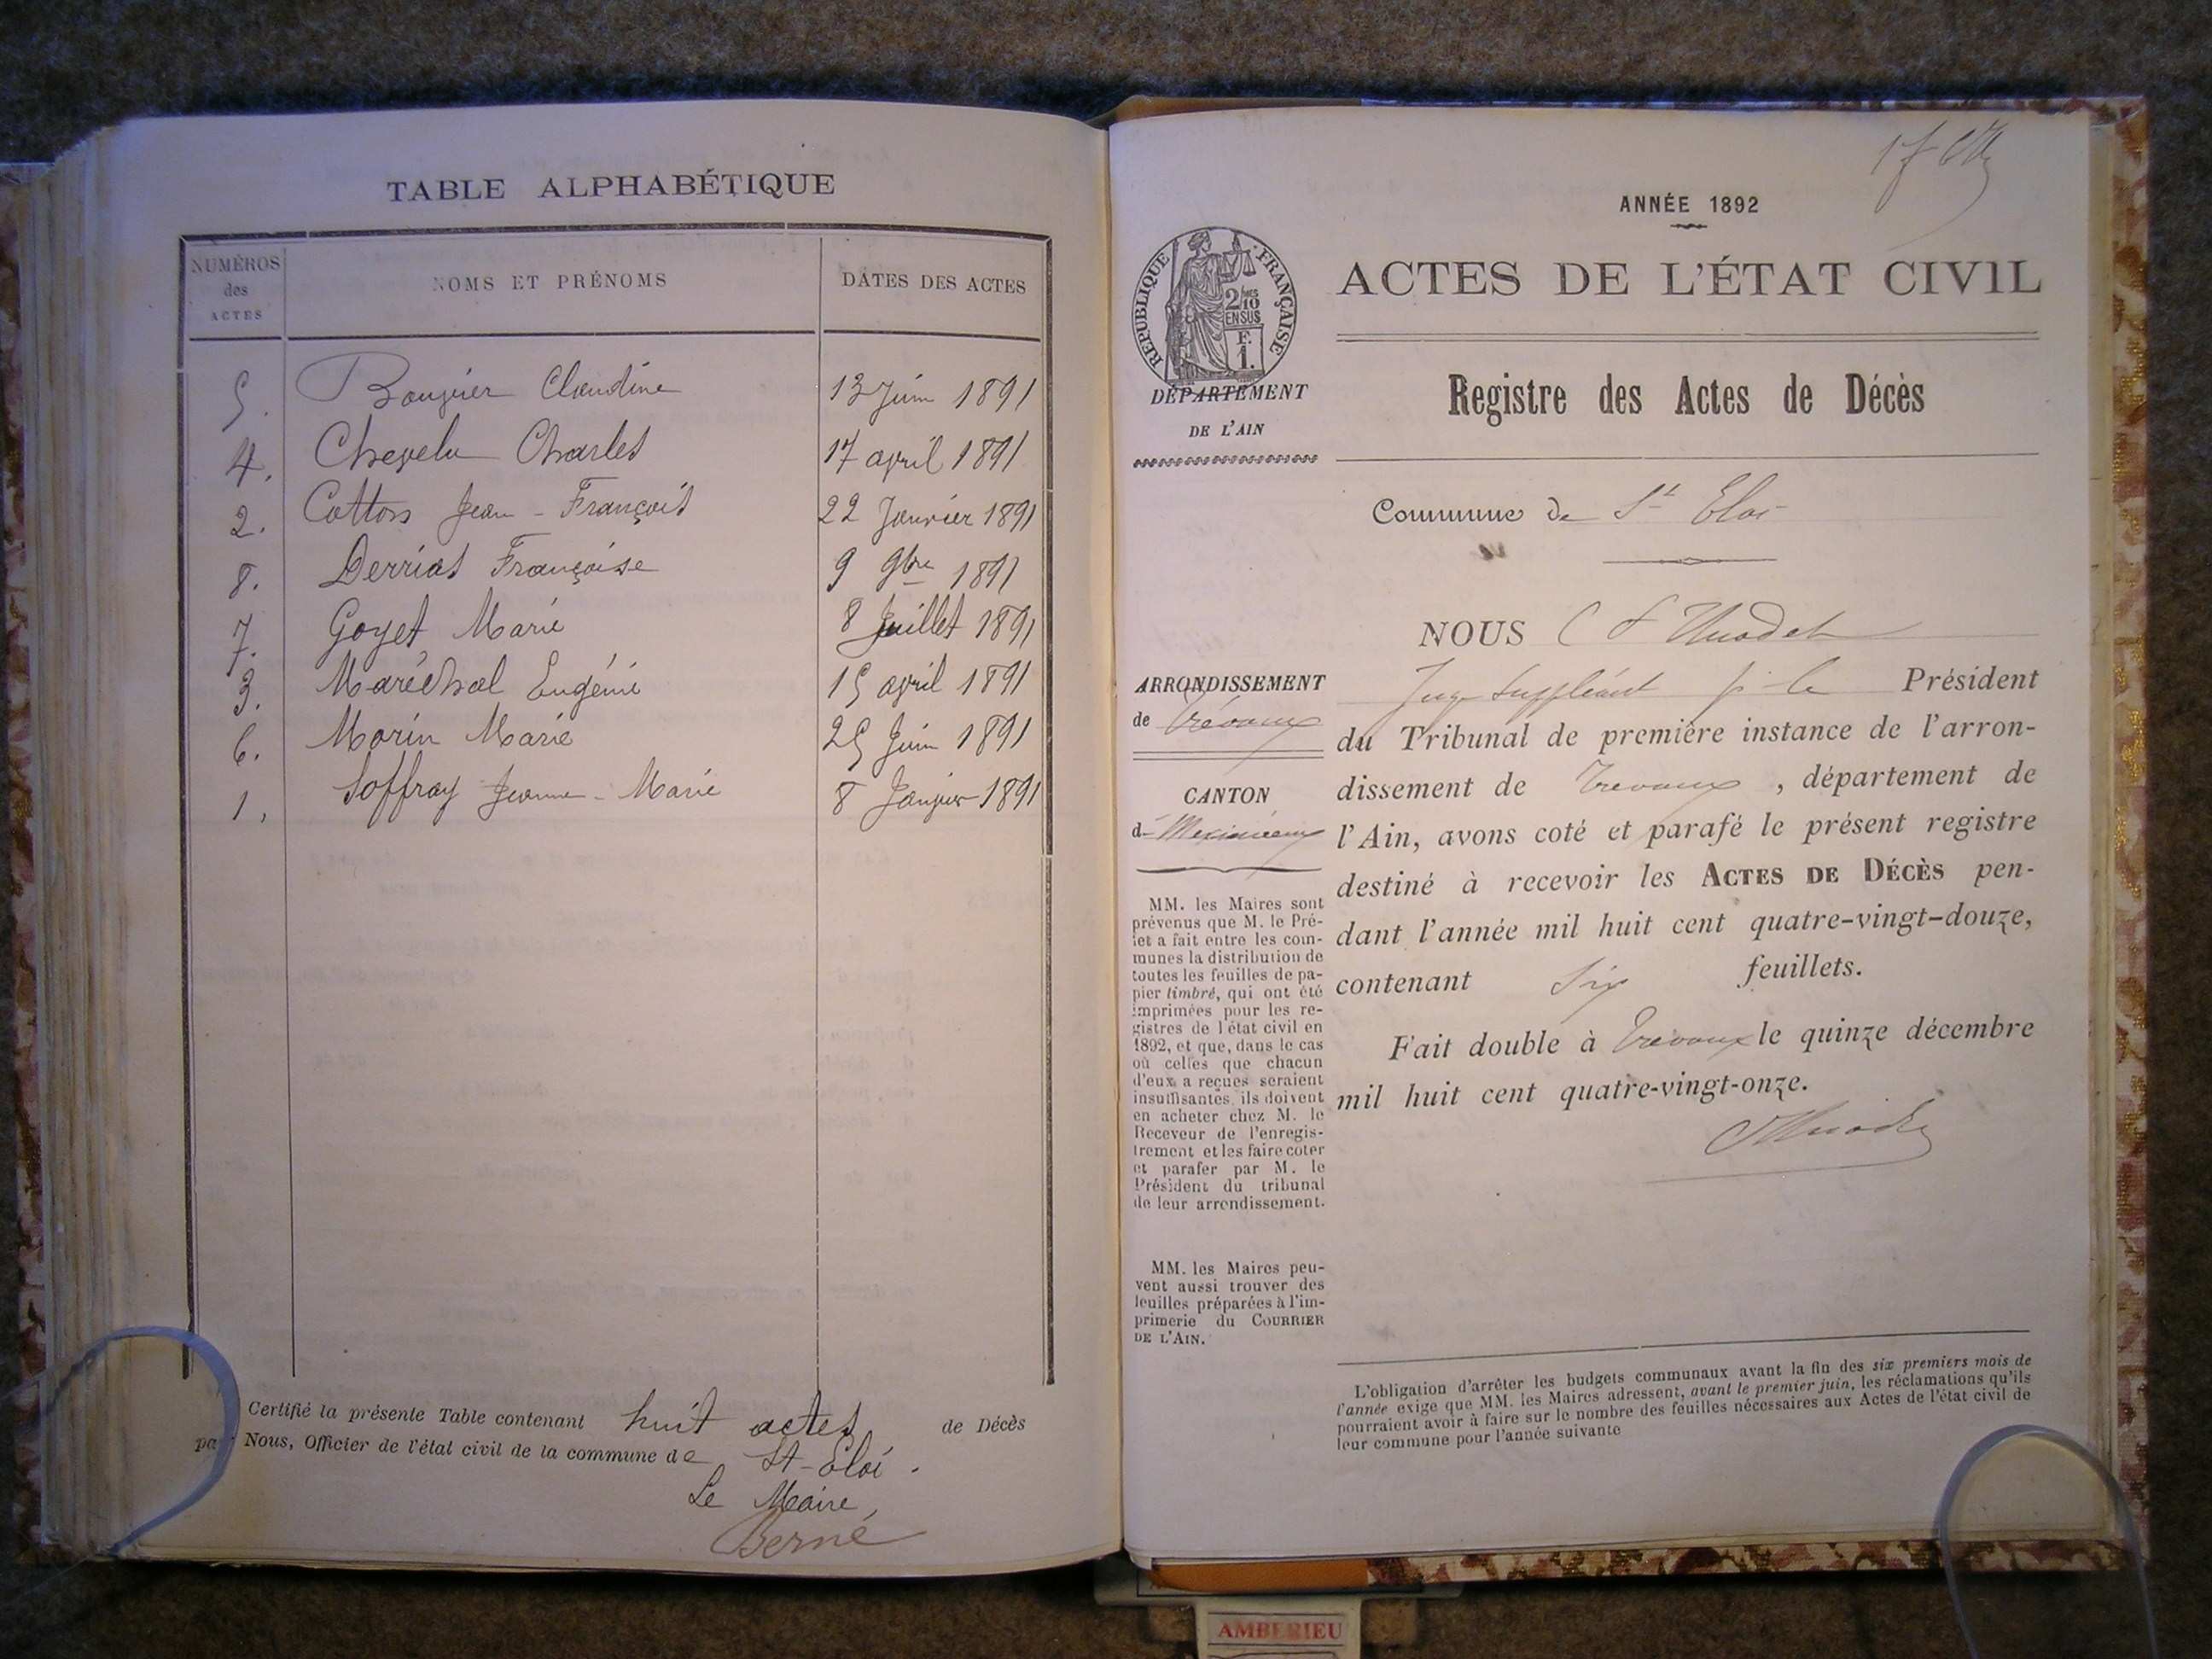 TABLE ALPHABÉTIQUE
NUMÉROS
des
ACTES
NOMS ET PRÉNOMS
DATES DES ACTES
5. Bouvier Claudine 13 Juin 1891
4. Chevelu Charles 17 avril 1891
2. Cotton Jean-François 22 Janvier 1891
8. Derrias Françoise 9 9bre 1891
7. Goyet Marie 8 Juillet 1891
3. Maréchal Eugénie 15 avril 1891
6. Morin Marie 25 Juin 1891
1. Soffray Jeanne-Marie 8 Janvier 1891
Certifié la présente Table contenant huit actes de Décès
par Nous, Officier de l'état civil de la commune de St-Eloi.
Le Maire,
Berné
ANNÉE 1892
RÉPUBLIQUE FRANÇAISE
2/10
EN SUS
F.
1.
ACTES DE L'ÉTAT CIVIL
DÉPARTEMENT
DE L'AIN
Registre des Actes de Décès
Commune de St Eloi
NOUS
Juge Suppléant p. le Président
du Tribunal de première instance de l'arron-
dissement de Trévoux, département de
l'Ain, avons coté et parafé le présent registre
destiné à recevoir les ACTES DE DÉCÈS pen-
dant l'année mil huit cent quatre-vingt-douze,
contenant Six feuillets.
Fait double à Trévoux le quinze décembre
mil huit cent quatre-vingt-onze.
ARRONDISSEMENT
de Trévoux
CANTON
de Meximieux
MM. les Maires sont
prévenus que M. le Pré-
fet a fait entre les com-
munes la distribution de
toutes les feuilles de pa-
pier timbré, qui ont été
imprimées pour les re-
gistres de l'état civil en
1892, et que, dans le cas
où celles que chacun
d'eux a reçues seraient
insuffisantes, ils doivent
en acheter chez M. le
Receveur de l'enregis-
trement et les faire coter
et parafer par M. le
Président du tribunal
de leur arrondissement.
MM. les Maires peu-
vent aussi trouver des
feuilles préparées à l'im-
primerie du COURRIER
DE L'AIN.
L'obligation d'arrêter les budgets communaux avant la fin des six premiers mois de
l'année exige que MM. les Maires adressent, avant le premier juin, les réclamations qu'ils
pourraient avoir à faire sur le nombre des feuilles nécessaires aux Actes de l'état civil de
leur commune pour l'année suivante
AMBERIEU